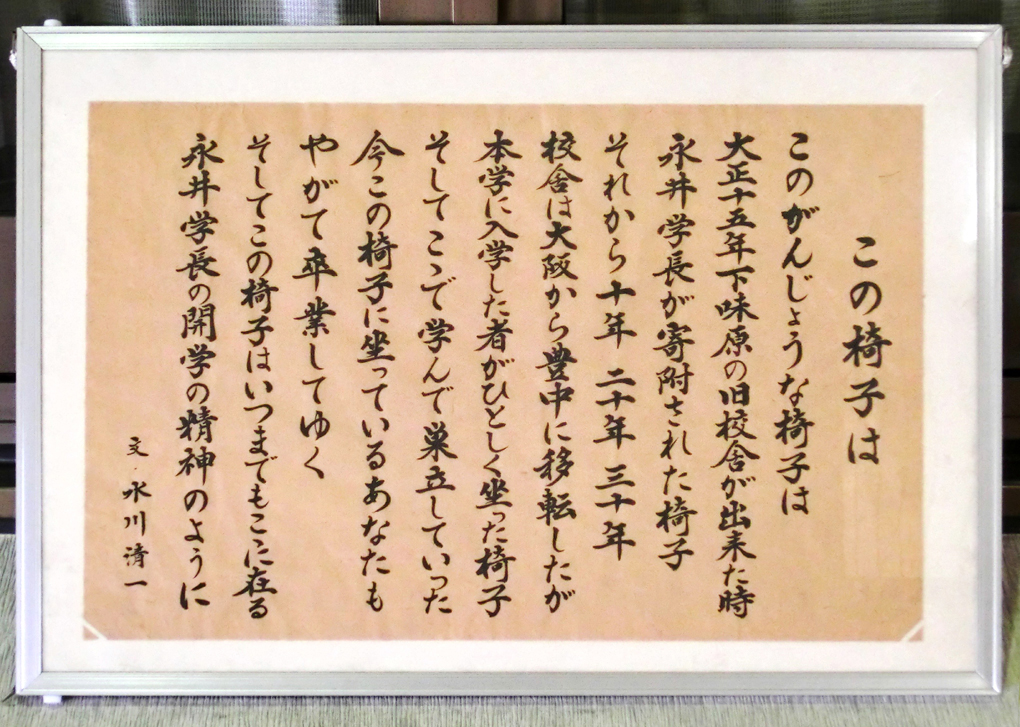 この椅子は
このがんじょうな椅子は
大正十五年下味原の旧校舎が出来た時
永井学長が寄附された椅子
それから十年 二十年 三十年
校舎は大阪から豊中に移転したが
本学に入学した者がひとしく坐った椅子
そしてこゝで学んで巣立していった
今この椅子に坐っているあなたも
やがて卒業してゆく
そしてこの椅子はいつまでもこゝに在る
永井学長の開学の精神のように
文・水川清一